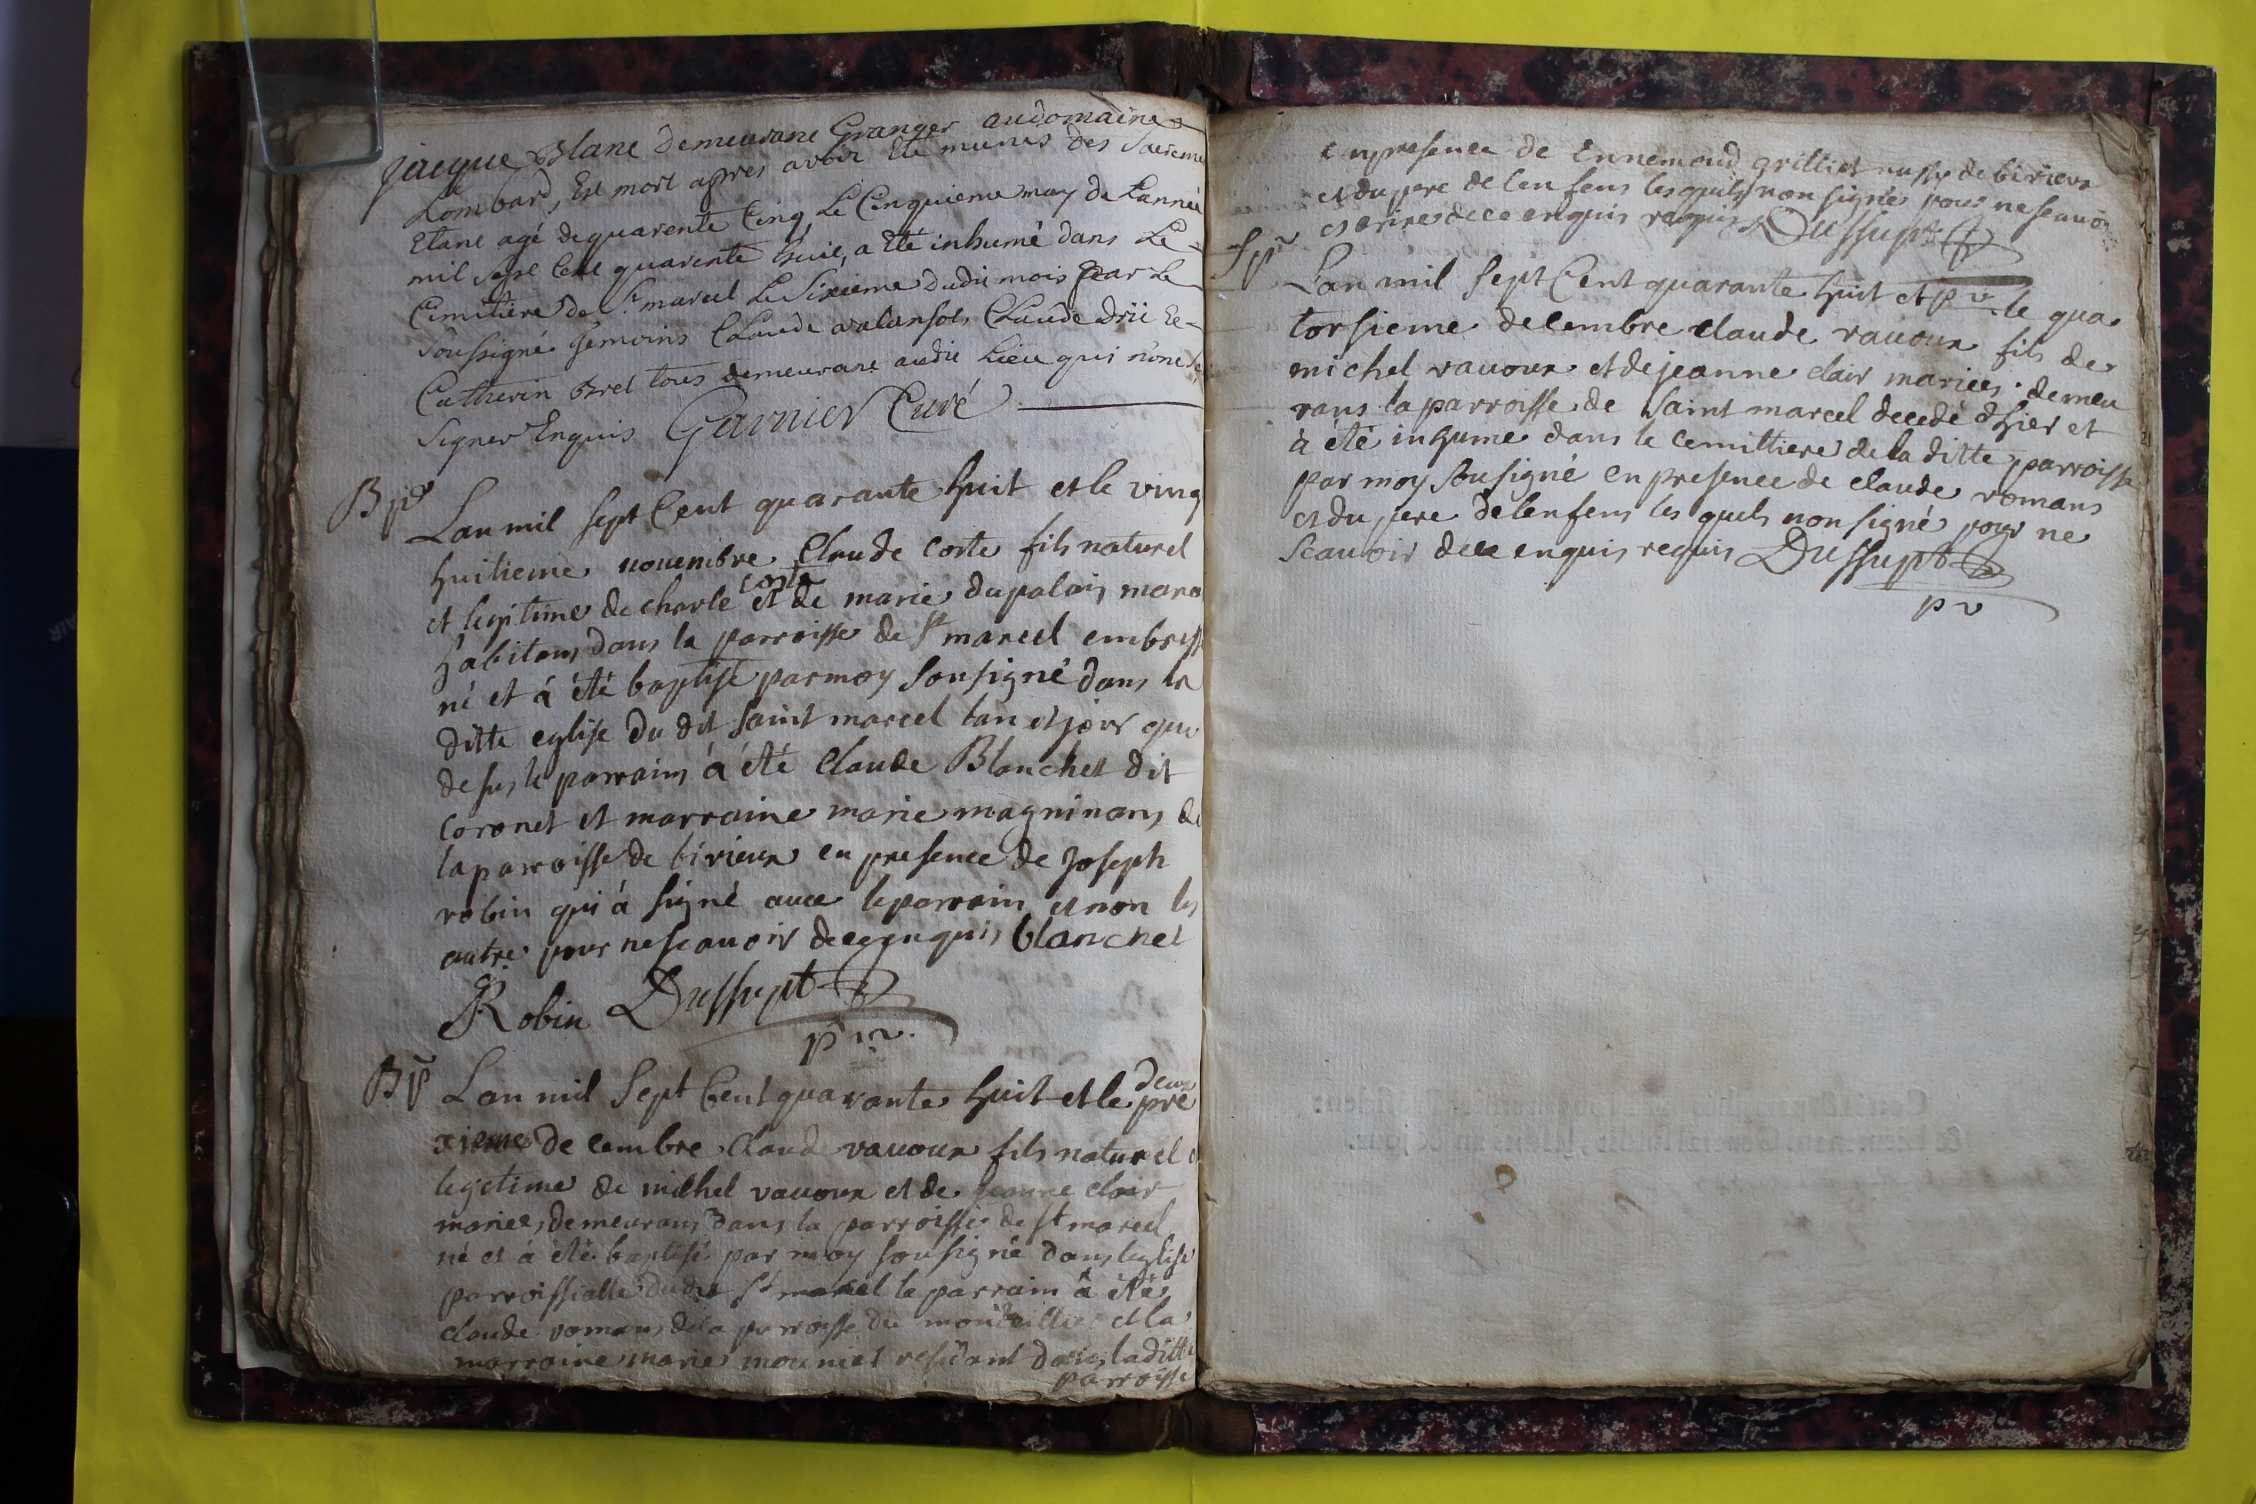 jacque Blanc demeurant Granger audomaine
Lombard, Est mort apres avoir Eté munis des Sacreme
Etant agé dequarente Cinq Le Cinquieme may de Lannée
mil Sept Cent quarente huit, a Eté inhumé dans Le
Cimitiere de St marcel Le Sixieme dudit mois par Le
Soussigné Temoins Claude Claude Drit Et
Catherin Bret tous demeurant audit Lieu qui nont Sc
Signer Enquis Garnier Curé
Bp
Lan mil sept Cent quarante huit et le ving
huitieme novembre Claude coste fils naturel
et legitime de charle coste et de marie dupalais maria
habitans dans la parroisse de st marcel embresse
né et à été baptisé par moy sousigné dans la
ditte eglise du dit saint marcel lan et jour que
desus le parrains à été Claude Blanchet dit
coronet et marraine marie magninans de
la parroisse de birieux en presence de Joseph
robin qui à signé avec le parrain et non les
autre pour ne scavoir de ce enquis blanchet
Robin Dussupt
p v
Bp
Lan mil Sept Cent quarante huit et le deux
xieme decembre Claude vavoux fils naturel e
legetime de michel vavoux et de jeanne clair
mariees demeurans dans la parroisse de st marcel
né et à été baptisé par moy sousigné dans leglise
parroissialle dudit st marcel le parrain à été
claude romans de la parroisse du et la
marraine marie mouniet residant dans laditte
parroisse
enpresence de Ennemond grilliet de birieux
et du pere de lenfens lesquels non signé pour ne scavo
escrire de ce enquis requis Dussupt
Sp
Lan mil sept Cent quarante huit et p v le qua
torsieme decembre claude vavoux fils de
michel vavoux et de jeanne clair mariees demeu
rans la parroisse de saint marcel decedé dhier et
à été inhume dans le cemittiere de la ditte parroisse
par moy sousigné en presence de claude romans
et du pere de lenfens les quels non signé pour ne
scavoir de ce enquis requis Dussupt
p v